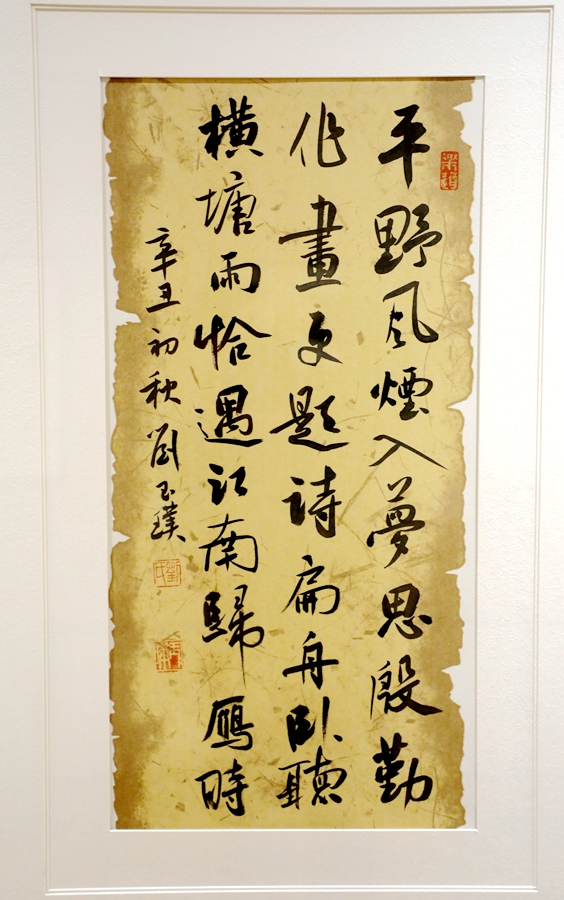 平野風煙入夢思殷勤
作畫更題詩扁舟臥聽
橫塘雨恰遇江南歸鴈時
辛丑初秋劉玉璞
劉氏